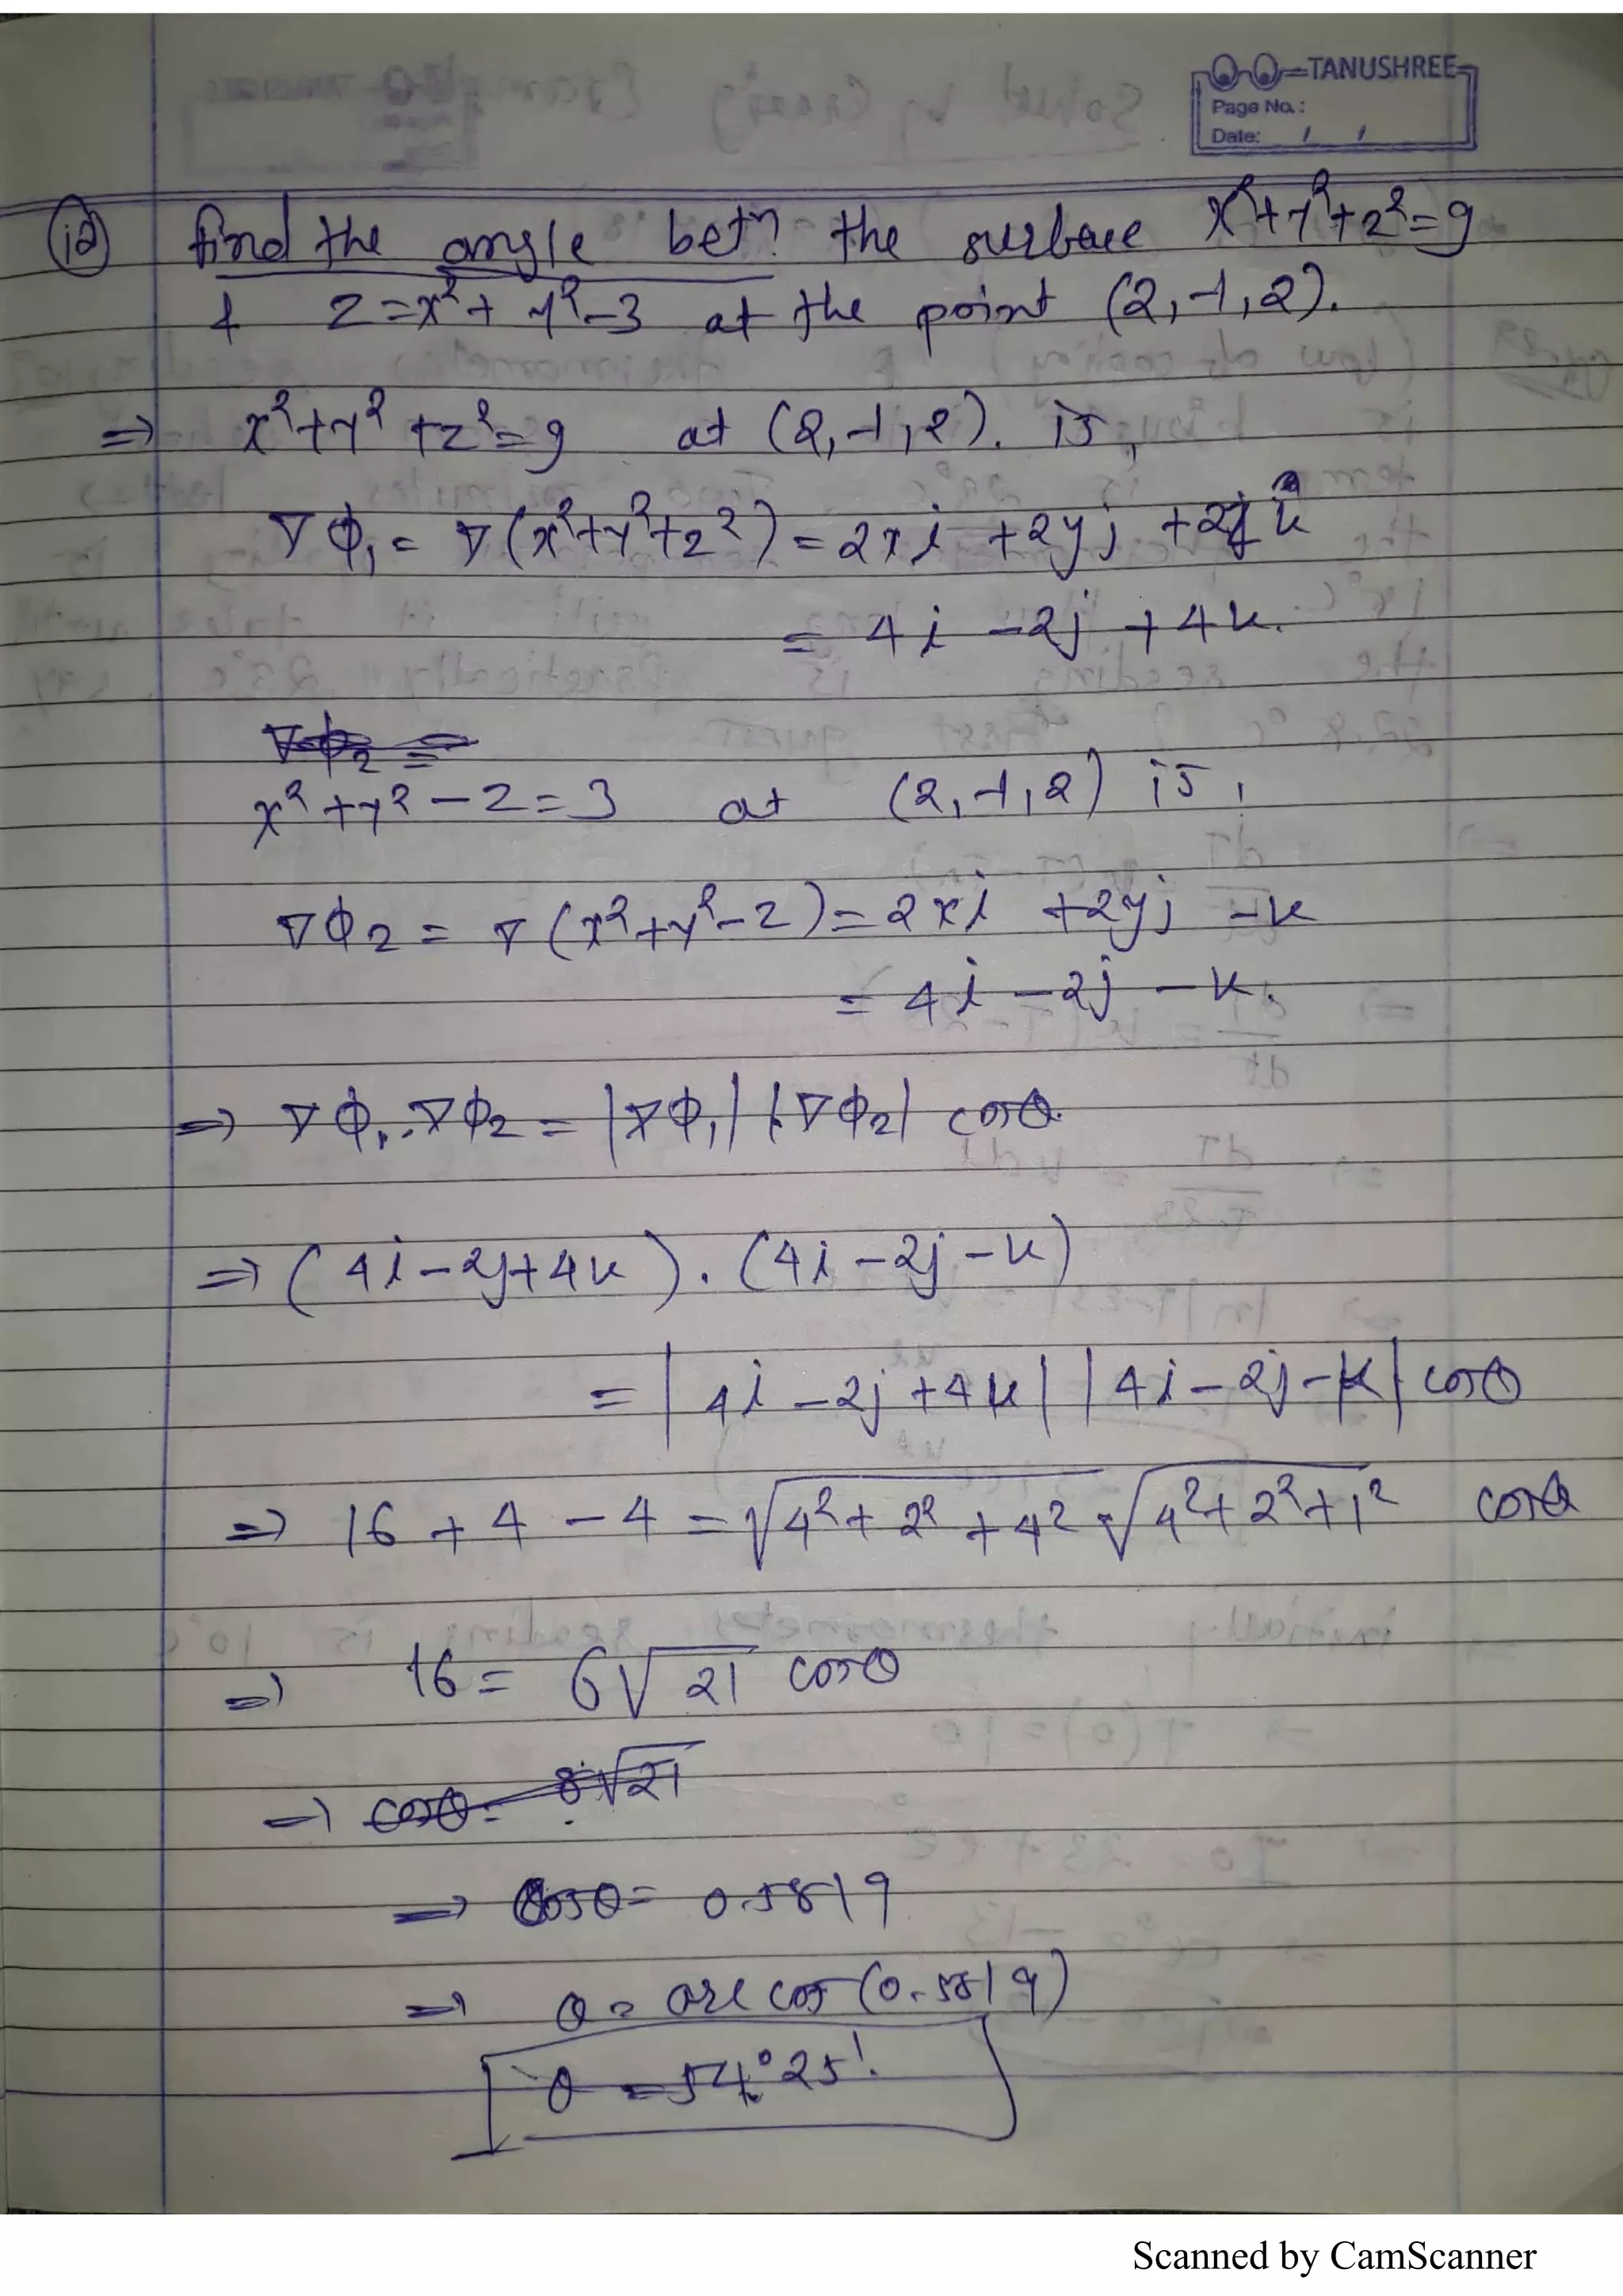 TANUSHREE
Page No.:
Date: / /
(12) find the angle betn the surface x²+y²+z²=9
& z=x²+y²-3 at the point (2,-1,2).
⇒ x²+y²+z²=9 at (2,-1,2). is,
∇Φ₁ = ∇(x²+y²+z²) = 2xi +2yj +2zk
= 4i -2j +4k.
∇Φ₂ =
x²+y²-z=3 at (2,-1,2) is,
∇Φ₂ = ∇(x²+y²-z) = 2xi +2yj -k
= 4i -2j -k.
⇒ ∇Φ₁.∇Φ₂ = |∇Φ₁| |∇Φ₂| cosθ.
⇒ (4i-2j+4k).(4i-2j-k)
= |4i-2j+4k| |4i-2j-k| cosθ
⇒ 16+4-4 = √4²+2²+4² √4²+2²+1² cosθ
⇒ 16 = 6√21 cosθ
⇒ cosθ = 8√21
⇒ cosθ = 0.5819
⇒ θ = arc cos(0.5819)
θ = 54°25'.
Scanned by CamScanner